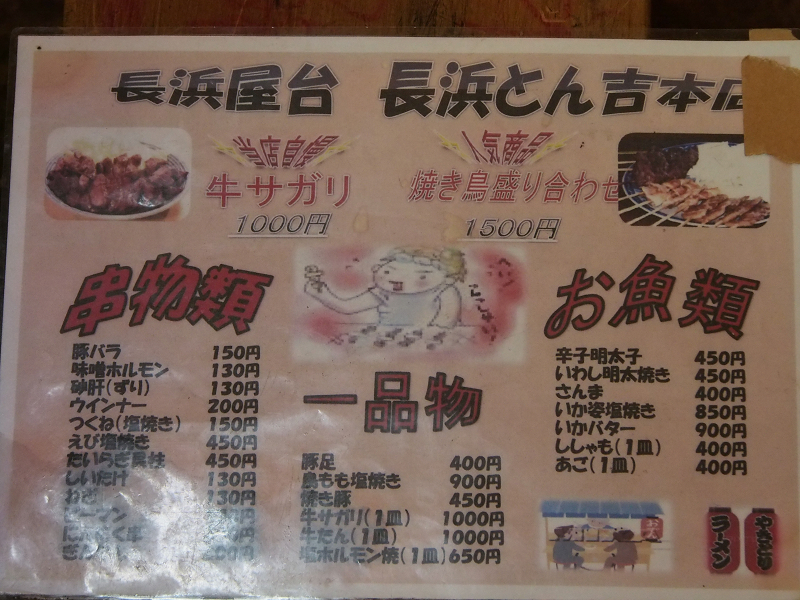 長浜屋台 長浜とん吉本店
当店自慢
牛サガリ
1000円
人気商品
焼き鳥盛り合わせ
1500円
串物類
豚バラ 150円
味噌ホルモン 130円
砂肝(ずり) 130円
ウインナー 200円
つくね(塩焼き) 150円
えび塩焼き 450円
たいらぎ貝柱 450円
しいたけ 130円
ねぎ 130円
一品物
豚足 400円
鳥もも塩焼き 900円
焼き豚 450円
牛サガリ(1皿) 1000円
牛たん(1皿) 1000円
塩ホルモン焼(1皿) 650円
お魚類
辛子明太子 450円
いわし明太焼き 450円
さんま 400円
いか姿塩焼き 850円
いかバター 900円
ししゃも(1皿) 400円
あご(1皿) 400円
ラーメン
やきとり